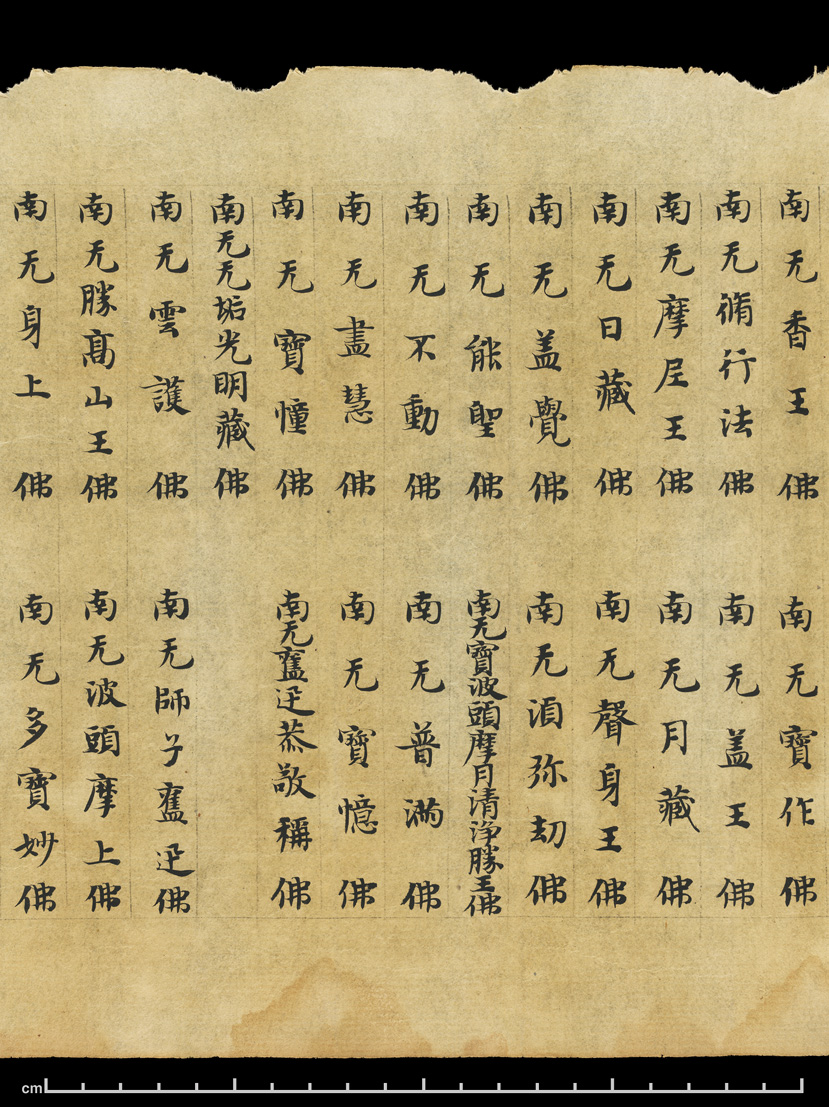 南无香王佛
南无寶作佛
南无脩行法佛
南无盖王佛
南无摩尼王佛
南无月藏佛
南无日藏佛
南无聲身王佛
南无盖覺佛
南无湏弥劫佛
南无能聖佛
南无寶波頭摩月清淨勝王佛
南无不動佛
南无普滿佛
南无盡慧佛
南无寶憶佛
南无寶憧佛
南无奮迅恭敬稱佛
南无无垢光明藏佛
南无雲護佛
南无師子奮迅佛
南无勝髙山王佛
南无波頭摩上佛
南无身上佛
南无多寶妙佛
cm